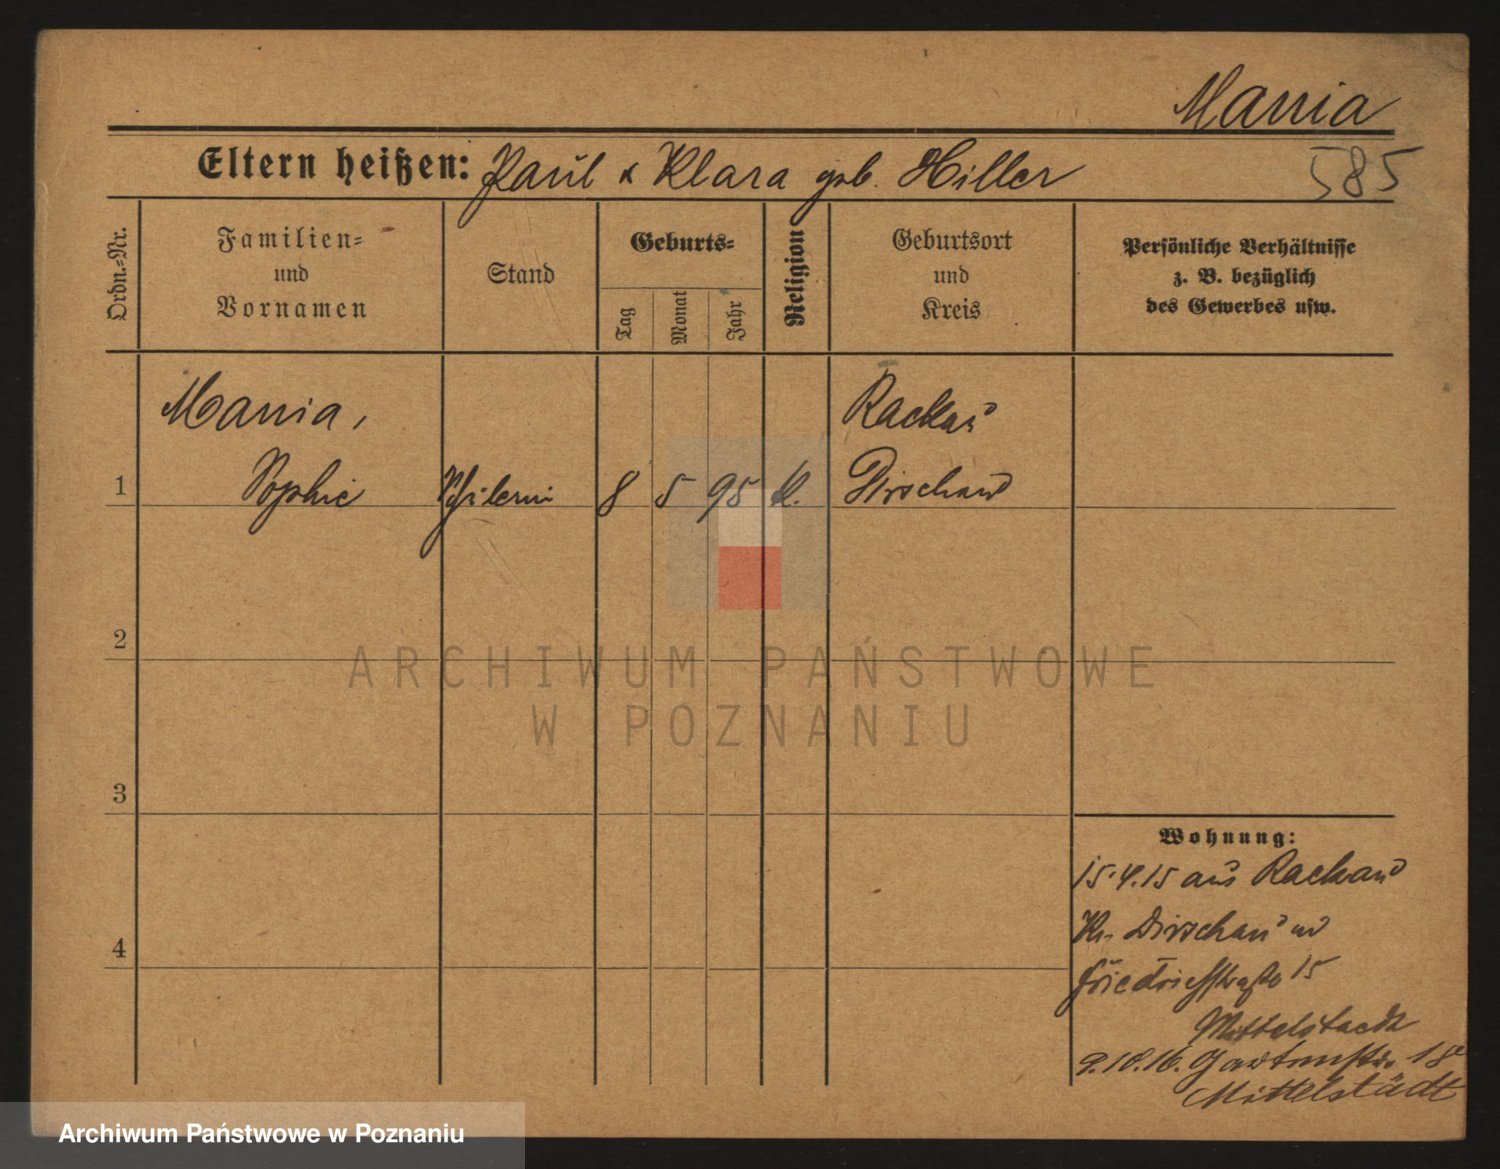 Mania
Eltern heißen: Paul & Klara geb. Hiller
585
Ordn.=Nr.
Familien=
und
Vornamen
Stand
Geburts=
Tag
Monat
Jahr
Religion
Geburtsort
und
Kreis
Persönliche Verhältnisse
z. B. bezüglich
des Gewerbes usw.
Mania,
Sophie
1
8 5 95 k.
Rackau
Dirschau
2
3
4
ARCHIWUM PAŃSTWOWE
W POZNANIU
Wohnung:
15.4.15 aus Rackau
Kr. Dirschau
Friedrichstraße 15
Mittelstaedt
9.10.16. Gartenstr. 18
Mittelstädt
Archiwum Państwowe w Poznaniu